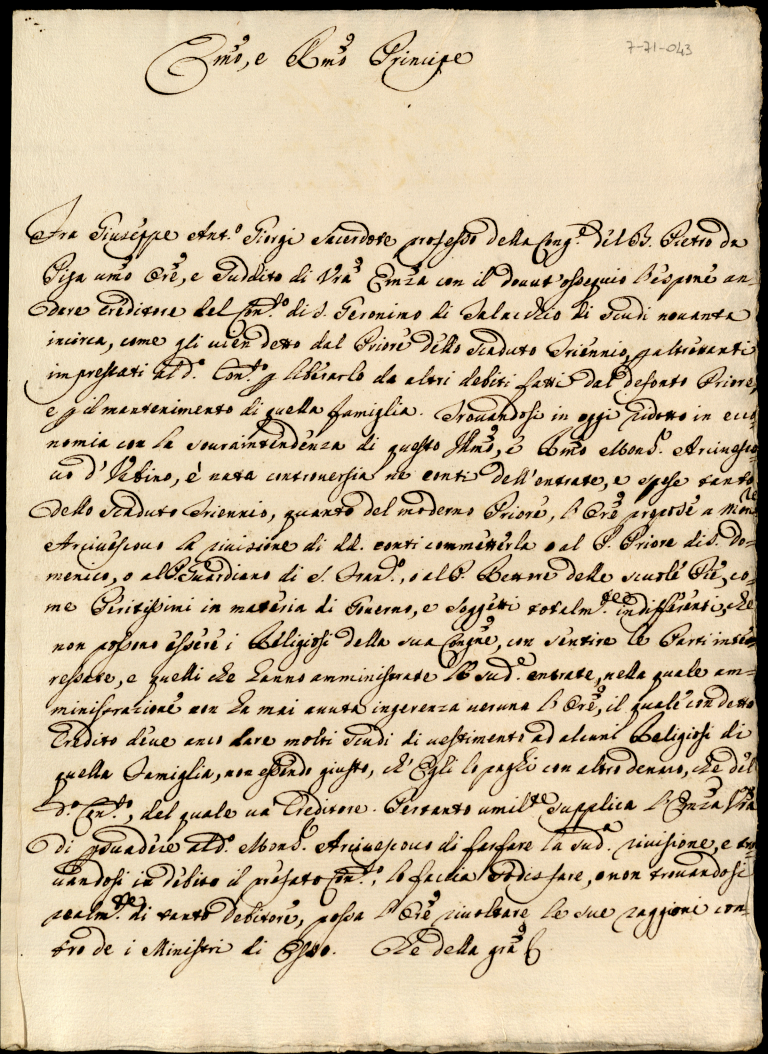 7-71-043
Emo, e Rmo Principe
Fra Giuseppe Ant.º Giorgi Sacerdote professo della Cong.e del B. Pietro da
Pisa umo Ore, e Suddito di Vra Emza con il dovut'ossequio l'espone an-
dare creditore del Con.to di S. Geronimo di Saladdio di Scudi novanta
incirca, come gli vien detto dal Priore dello Scaduto Triennio, p altretanti
imprestati al d.º Con.to p liberarlo da altri debiti fatti dal defonto Priore,
e p il mantenimento di quella famiglia. Trovandosi in oggi ridotto in eco-
nomia con la sovraintendenza di questo Illmo, e Rmo Mons.r Arcivesco-
vo d'Urbino, è nata controversia ne conti dell'entrate, e spese tanto
dello Scaduto Triennio, quanto del moderno Priore, l'Ore propose a Mons.re
Arcivescovo la rivisione di dd. conti commetterla o al P. Priore di S. Do-
menico, o al P. Guardiano di S. Fran.º, o al P. Rettore delle scuole Pie, co-
me Peritissimi in materia di Governo, e Soggetti totalm.te indifferenti, che
non possono essere i Religiosi della sua Congne, con sentire le Parti inte-
ressate, e quelli che hanno amministrate le sud.e entrate, nella quale am-
ministrazione non ha mai avuta ingerenza veruna l'Ore, il quale con detto
Credito deve anco dare molti scudi di vestimento ad alcuni Religiosi di
quella Famiglia, non essendo giusto, ch'Egli lo paghi con altro denaro, che del
d.º Con.to, del quale va Creditore. Pertanto umil.te supplica l'Emza Vra
di psuadere al d.º Mons.r Arcivescovo di far fare la sud.a rivisione, e tro-
vandosi in debito il prefato Con.to, lo faccia sodisfare, o non trovandosi
realm.te di tanto debitore, possa l'Ore rivoltare le sue raggioni con-
tro de i Ministri di Esso. Che della gra